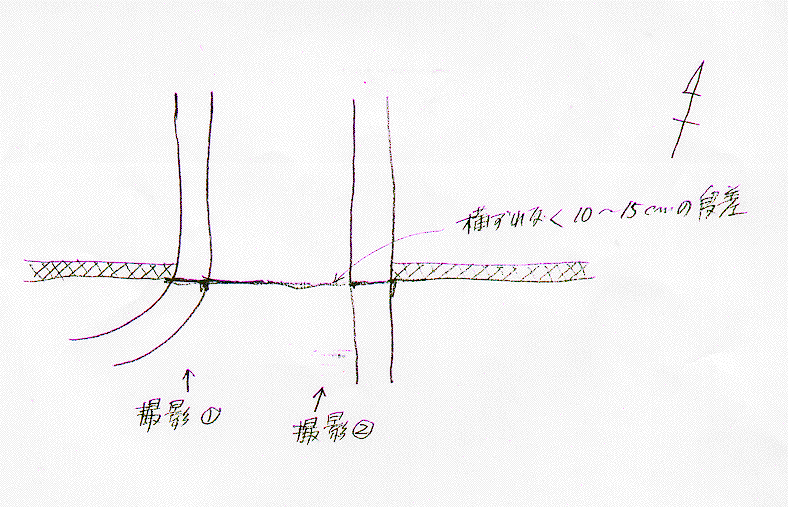 横ずれなく10～15cmの段差
撮影①
撮影②